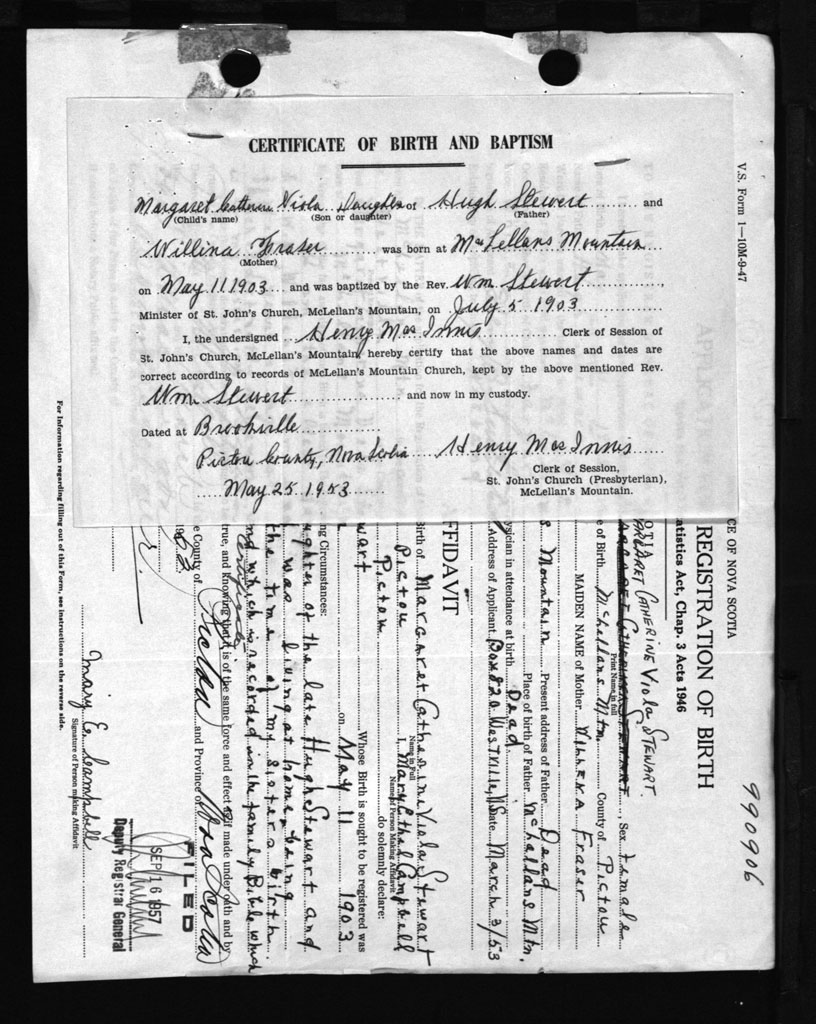 CERTIFICATE OF BIRTH AND BAPTISM
Margaret Catherine Viola Daughter of Hugh Stewert and
(Child's name) (Son or daughter) (Father)
Willina Fraser was born at MacLellans Mountain
(Mother)
on May 11 1903 and was baptized by the Rev. Wm Stewert,
Minister of St. John's Church, McLellan's Mountain, on July 5 1903
I, the undersigned Henry MacInnis Clerk of Session of
St. John's Church, McLellan's Mountain, hereby certify that the above names and dates are
correct according to records of McLellan's Mountain Church, kept by the above mentioned Rev.
Wm Stewert and now in my custody.
Dated at Brookville
Pictou County, Nova Scotia Henry MacInnis
Clerk of Session,
May 25 1953 St. John's Church (Presbyterian),
McLellan's Mountain.
V.S. Form 1—10M-9-47
990906
CE OF NOVA SCOTIA
REGISTRATION OF BIRTH
atistics Act, Chap. 3 Acts 1946
MARGARET CATHERINE VIOLA STEWART
Sex Female
Print Name in full
e of Birth McLellans Mtn County of Pictou
MAIDEN NAME of Mother Fraser
s Mountain Present address of Father Dead
Place of birth of Father McLellans Mtn.
ysician in attendance at birth Dead
Address of Applicant Box 820 Westville, NS Date March 3/53
FFIDAVIT
Birth of Margaret Catherine Viola Stewart
Name in Full
Pictou I, Mary Ethel Campbell
Name of Person Making Affidavit
Pictou do solemnly declare:
wart Whose Birth is sought to be registered was
on May 11 1903
ng Circumstances:
ughter of the late Hugh Stewart and
I was living at home, being
the time of my sisters birth
nd which is recorded in the family Bible which
true, and knowing that it is of the same force and effect as if made under oath and by
e County of Pictou and Province of Nova Scotia
FILED
SEP 16 1957
Deputy Registrar General
Mary E. Campbell
Signature of Person making Affidavit
For Information regarding filling out of this Form, see instructions on the reverse side.